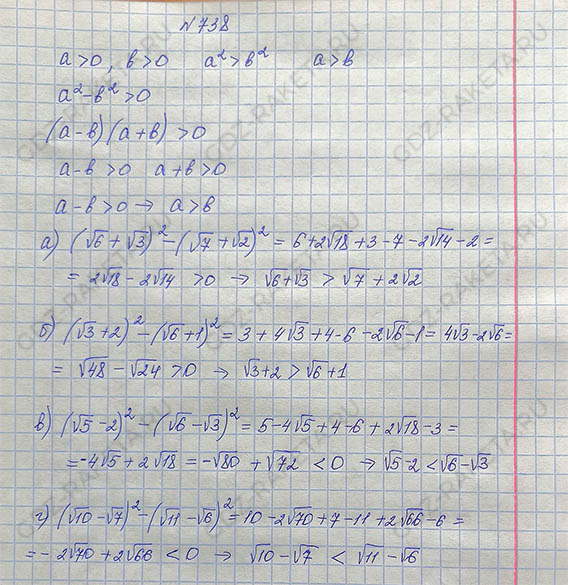 №738
a>0, b>0 a²>b² a>b
a²-b²>0
(a-b)(a+b)>0
a-b>0 a+b>0
a-b>0 → a>b
а) (√6+√3)²-(√7+√2)²=6+2√18+3-7-2√14-2=
=2√18-2√14>0 → √6+√3>√7+2√2
б) (√3+2)²-(√6+1)²=3+4√3+4-6-2√6-1=4√3-2√6=
=√48-√24>0 → √3+2>√6+1
в) (√5-2)²-(√6-√3)²=5-4√5+4-6+2√18-3=
=-4√5+2√18=-√80+√72<0 → √5-2<√6-√3
г) (√10-√7)²-(√11-√6)²=10-2√70+7-11+2√66-6=
=-2√70+2√66<0 → √10-√7<√11-√6
GDZ-RAKETA.RU